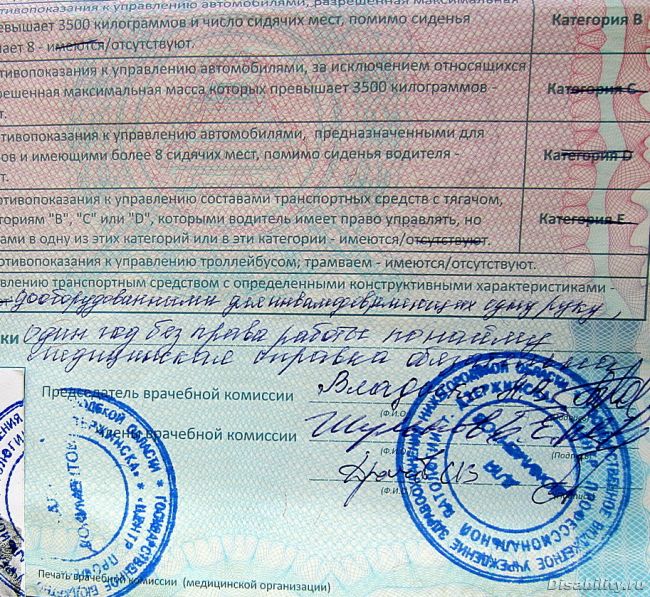 отивопоказания к управлению автомобилями, разрешенная максимальная
евышает 3500 килограммов и число сидячих мест, помимо сиденья
ает 8 - имеются/отсутствуют.
Категория В
тивопоказания к управлению автомобилями, за исключением относящихся
решенная максимальная масса которых превышает 3500 килограммов -
т.
Категория С
отивопоказания к управлению автомобилями, предназначенными для
ров и имеющими более 8 сидячих мест, помимо сиденья водителя -
т.
Категория D
отивопоказания к управлению составами транспортных средств с тягачом,
ториям "В", "С" или "D", которыми водитель имеет право управлять, но
ами в одну из этих категорий или в эти категории - имеются/отсутствуют.
Категория Е
отивопоказания к управлению троллейбусом; трамваем - имеются/отсутствуют.
авлению транспортным средством с определенными конструктивными характеристиками -
дооборудованными для инвалидов имеющих одну руку,
ки один год без права работы по найму
медицинская справка
Председатель врачебной комиссии
(Ф.И.О
Члены врачебной комиссии
(Ф.И.О
(Подпись)
(Ф.И.О
Печать врачебной комиссии (медицинской организации)
Disability.ru